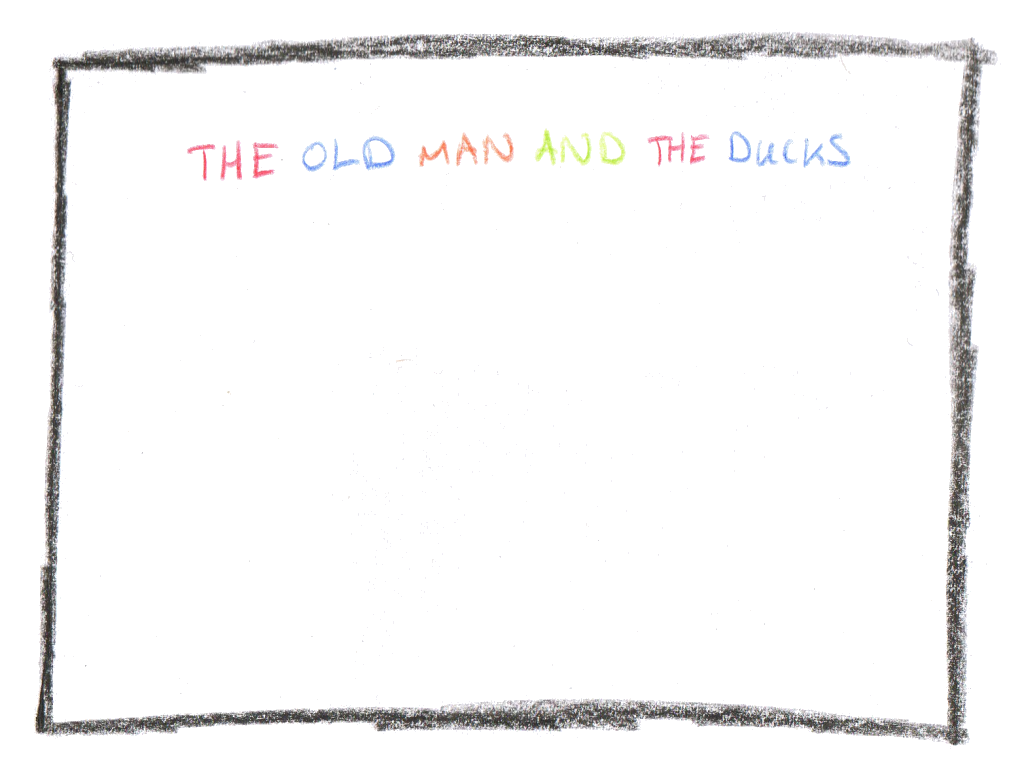 THE OLD MAN AND THE DUCKS